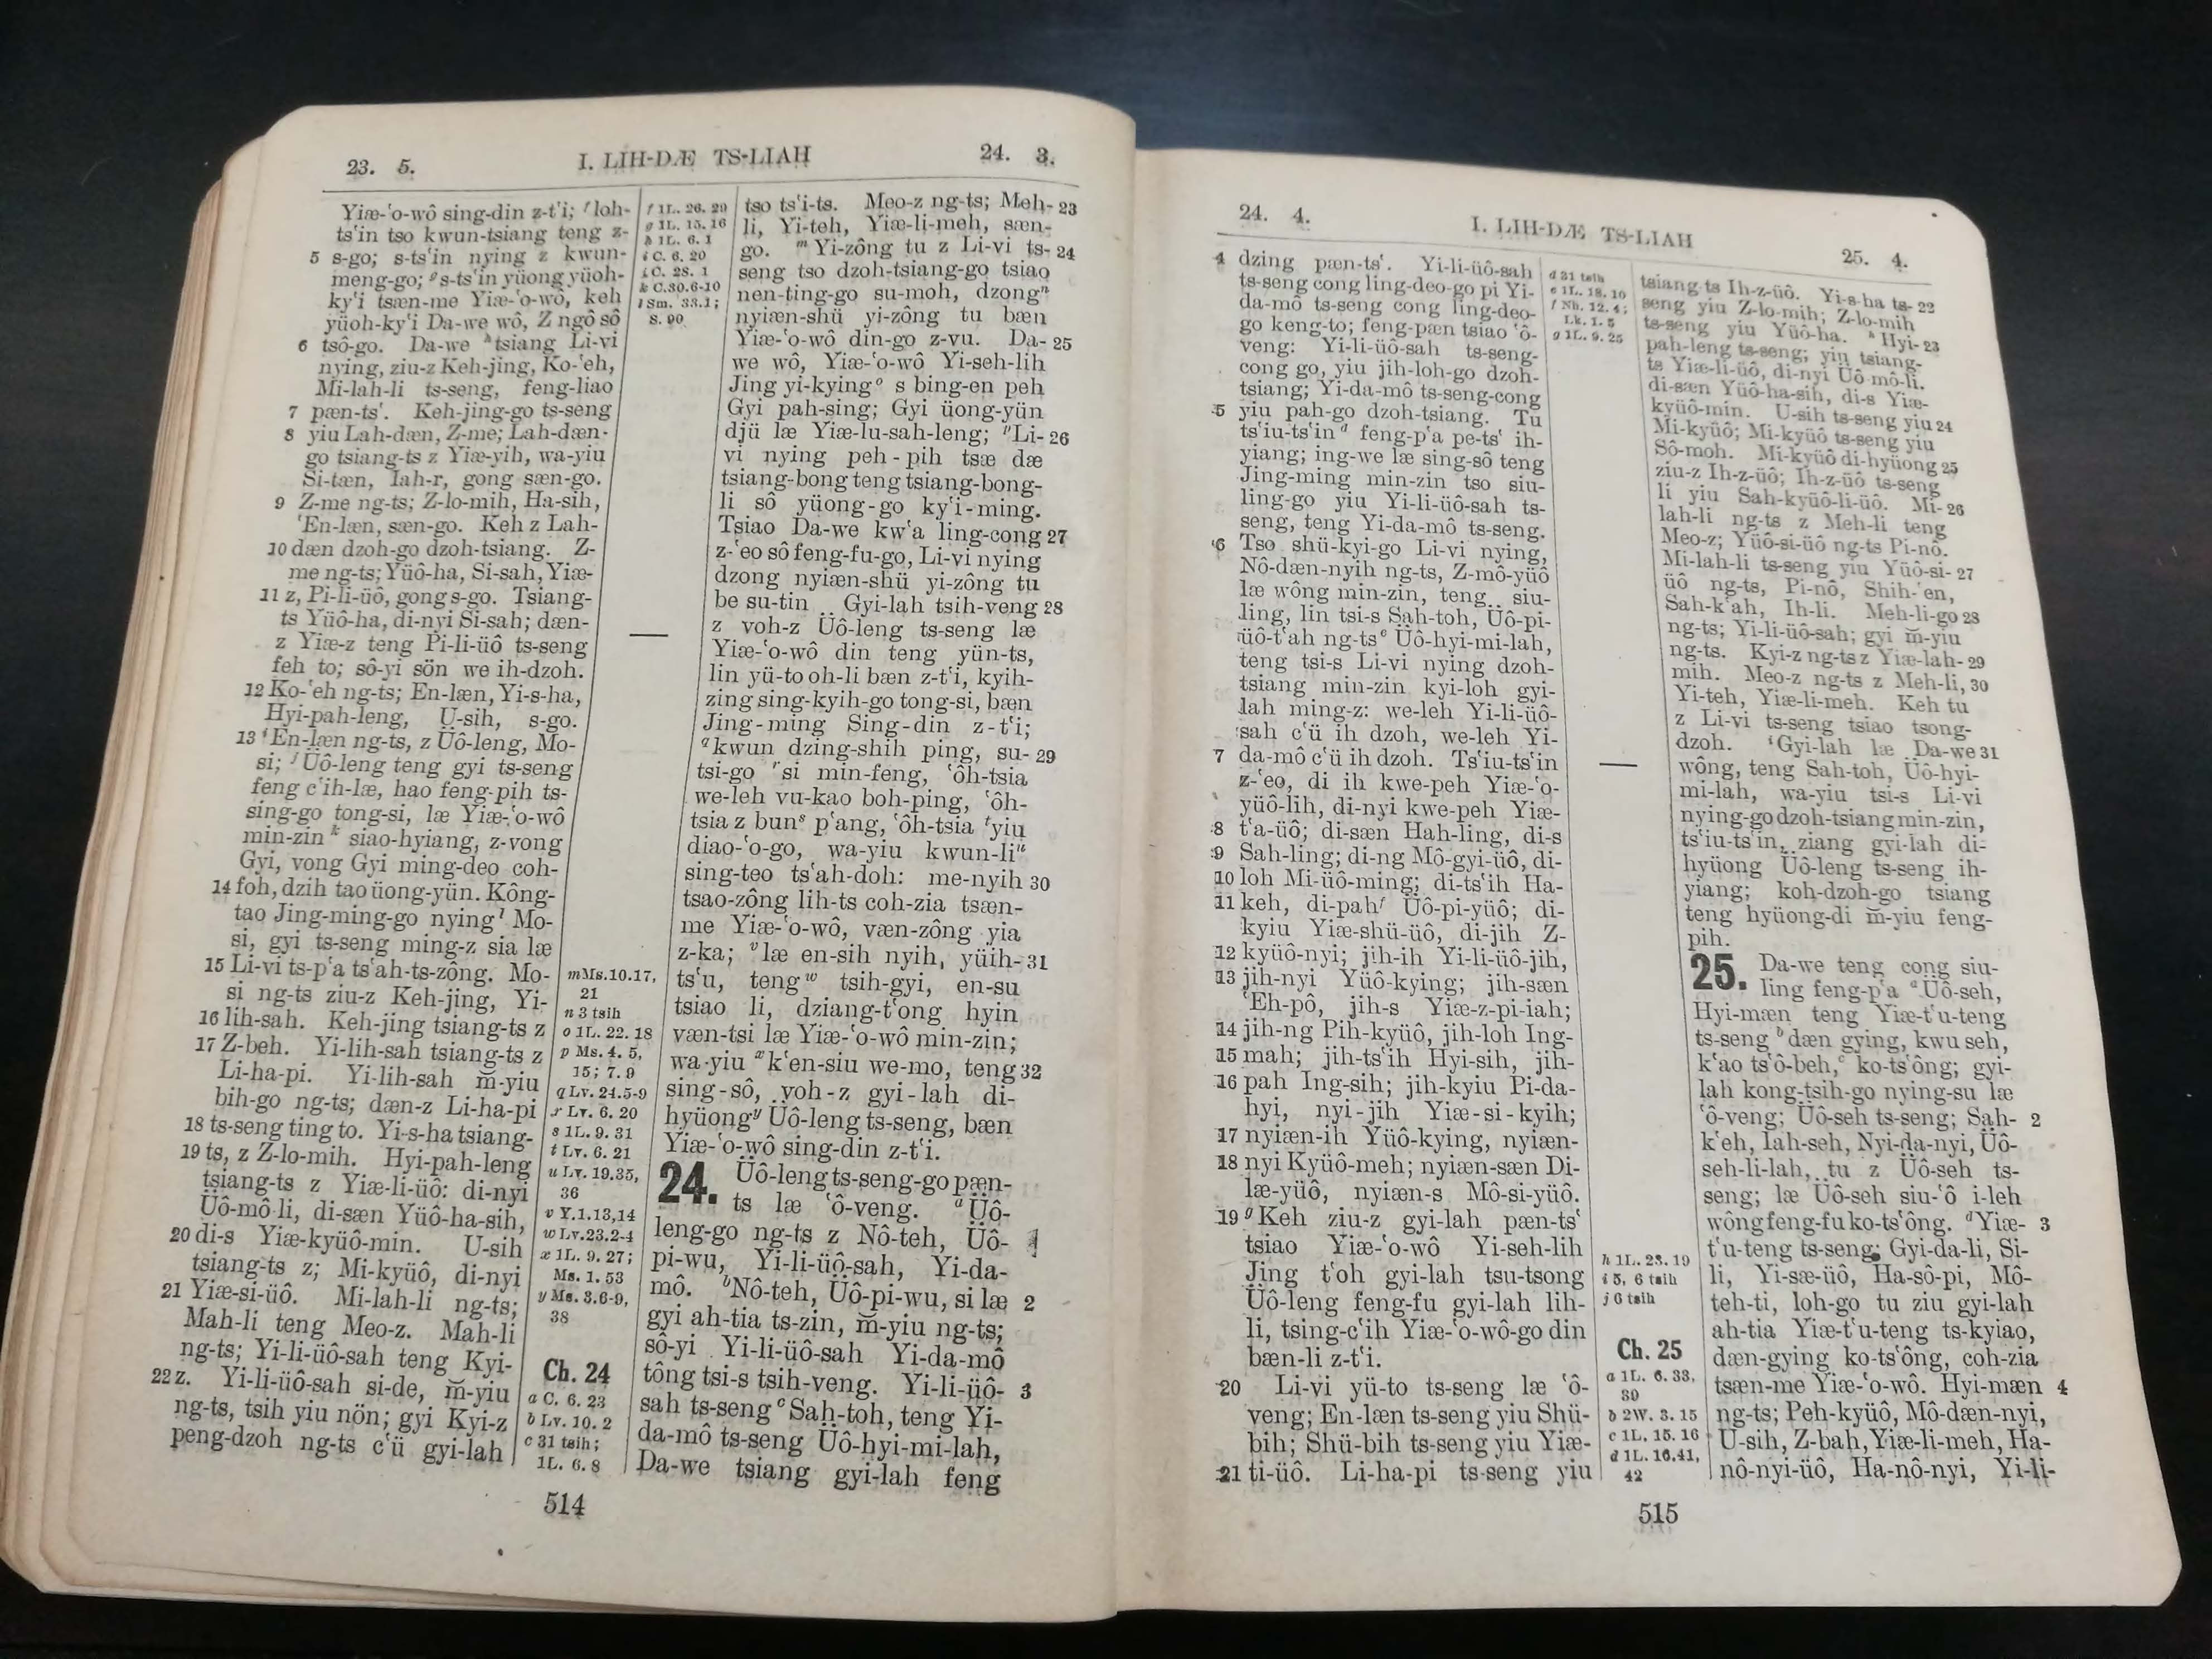 23. 5. I. LIH-DÆ TS-LIAH 24. 3.
Yiæ-ʽo-wô sing-din z-tʽi; ᶠloh-
tsʽin tso kwun-tsiang teng z-
5 s-go; s-tsʽin nying z kwun-
meng-go; ᵍs-tsʽin yüong yüoh-
kyʽi tsæn-me Yiæ-ʽo-wô, keh
yüoh-kyʽi Da-we wô, Z ngô sô
6 tsô-go. Da-we ʰtsiang Li-vi
nying, ziu-z Keh-jing, Ko-ʽeh,
Mi-lah-li ts-seng, feng-liao
7 pæn-tsʽ. Keh-jing-go ts-seng
8 yiu Lah-dæn, Z-me; Lah-dæn-
go tsiang-ts z Yiæ-yih, wa-yiu
Si-tæn, Iah-r, gong sæn-go.
9 Z-me ng-ts; Z-lo-mih, Ha-sih,
ʽEn-læn, sæn-go. Keh z Lah-
10 dæn dzoh-go dzoh-tsiang. Z-
me ng-ts; Yüô-ha, Si-sah, Yiæ-
11 z, Pi-li-üô, gong s-go. Tsiang-
ts Yüô-ha, di-nyi Si-sah; dæn-
z Yiæ-z teng Pi-li-üô ts-seng
feh to; sô-yi sön we ih-dzoh.
12 Ko-ʽeh ng-ts; En-læn, Yi-s-ha,
Hyi-pah-leng, U-sih, s-go.
13 ⁱEn-læn ng-ts, z Üô-leng, Mo-
si; ʲÜô-leng teng gyi ts-seng
feng cʽih-læ, hao feng-pih ts-
sing-go tong-si, læ Yiæ-ʽo-wô
min-zin ᵏ siao-hyiang, z-vong
Gyi, vong Gyi ming-deo coh-
14 foh, dzih tao üong-yün. Kông-
tao Jing-ming-go nying ˡ Mo-
si, gyi ts-seng ming-z sia læ
15 Li-vi ts-pʽa tsʽah-ts-zông. Mo-
si ng-ts ziu-z Keh-jing, Yi-
16 lih-sah. Keh-jing tsiang-ts z
17 Z-beh. Yi-lih-sah tsiang-ts z
Li-ha-pi. Yi-lih-sah m̆-yiu
bih-go ng-ts; dæn-z Li-ha-pi
18 ts-seng ting to. Yi-s-ha tsiang-
19 ts, z Z-lo-mih. Hyi-pah-leng
tsiang-ts z Yiæ-li-üô: di-nyi
Üô-mô-li, di-sæn Yüô-ha-sih,
20 di-s Yiæ-kyüô-min. U-sih
tsiang-ts z; Mi-kyüô, di-nyi
21 Yiæ-si-üô. Mi-lah-li ng-ts;
Mah-li teng Meo-z. Mah-li
ng-ts; Yi-li-üô-sah teng Kyi-
22 z. Yi-li-üô-sah si-de, m̆-yiu
ng-ts, tsih yiu nön; gyi Kyi-z
peng-dzoh ng-ts cʽü gyi-lah
f 1L. 26. 29
g 1L. 15. 16
h 1L. 6. 1
i C. 6. 20
j C. 28. 1
k C.30.6-10
l Sm. 33.1;
S. 90
m Ms.10.17,
21
n 3 tsih
o 1L. 22. 18
p Ms. 4. 5,
15; 7. 9
q Lv. 24.5-9
r Lv. 6. 20
s 1L. 9. 31
t Lv. 6. 21
u Lv. 19.35,
36
v Y.1.13,14
w Lv.23.2-4
x 1L. 9. 27;
Ms. 1. 53
y Ms. 3.6-9,
38
Ch. 24
a C. 6. 23
b Lv. 10. 2
c 31 tsih;
1L. 6. 8
tso tsʽi-ts. Meo-z ng-ts; Meh- 23
li, Yi-teh, Yiæ-li-meh, sæn-
go. ᵐ Yi-zông tu z Li-vi ts- 24
seng tso dzoh-tsiang-go tsiao
nen-ting-go su-moh, dzongⁿ
nyiæn-shü yi-zông tu bæn
Yiæ-ʽo-wô din-go z-vu. Da- 25
we wô, Yiæ-ʽo-wô Yi-seh-lih
Jing yi-kyingᵒ s bing-en peh
Gyi pah-sing; Gyi üong-yün
djü læ Yiæ-lu-sah-leng; ᵖLi- 26
vi nying peh-pih tsæ dæ
tsiang-bong teng tsiang-bong-
li sô yüong-go kyʽi-ming.
Tsiao Da-we kwʽa ling-cong 27
z-ʽeo sô feng-fu-go, Li-vi nying
dzong nyiæn-shü yi-zông tu
be su-tin Gyi-lah tsih-veng 28
z voh-z Üô-leng ts-seng læ
Yiæ-ʽo-wô din teng yün-ts,
lin yü-to oh-li bæn z-tʽi, kyih-
zing sing-kyih-go tong-si, bæn
Jing-ming Sing-din z-tʽi;
ᵠkwun dzing-shih ping, su- 29
tsi-go ʳsi min-feng, ʽôh-tsia
we-leh vu-kao boh-ping, ʽôh-
tsia z bunˢ pʽang, ʽôh-tsia ᵗyiu
diao-ʽo-go, wa-yiu kwun-liᵘ
sing-teo tsʽah-doh: me-nyih 30
tsao-zông lih-ts coh-zia tsæn-
me Yiæ-ʽo-wô, væn-zông yia
z-ka; ᵛlæ en-sih nyih, yüih- 31
tsʽu, tengʷ tsih-gyi, en-su
tsiao li, dziang-tʽong hyin
væn-tsi læ Yiæ-ʽo-wô min-zin;
wa-yiu ˣkʽen-siu we-mo, teng 32
sing-sô, voh-z gyi-lah di-
hyüongʸ Üô-leng ts-seng, bæn
Yiæ-ʽo-wô sing-din z-tʽi.
24. Üô-leng ts-seng-go pæn-
ts læ ʽô-veng. ᵃÜô-
leng-go ng-ts z Nô-teh, Üô- 1
pi-wu, Yi-li-üô-sah, Yi-da-
mô. ᵇNô-teh, Üô-pi-wu, si læ 2
gyi ah-tia ts-zin, m̆-yiu ng-ts;
sô-yi Yi-li-üô-sah Yi-da-mô
tông tsi-s tsih-veng. Yi-li-üô- 3
sah ts-seng ᶜSah-toh, teng Yi-
da-mô ts-seng Üô-hyi-mi-lah,
Da-we tsiang gyi-lah feng
514
24. 4. I. LIH-DÆ TS-LIAH 25. 4.
4 dzing pæn-tsʽ. Yi-li-üô-sah
ts-seng cong ling-deo-go pi Yi-
da-mô ts-seng cong ling-deo-
go keng-to; feng-pæn tsiao ʽô-
veng: Yi-li-üô-sah ts-seng-
cong go, yiu jih-loh-go dzoh-
tsiang; Yi-da-mô ts-seng-cong
5 yiu pah-go dzoh-tsiang. Tu
tsʽiu-tsʽin ᵈ feng-pʽa pe-tsʽ ih-
yiang; ing-we læ sing-sô teng
Jing-ming min-zin tso siu-
ling-go yiu Yi-li-üô-sah ts-
seng, teng Yi-da-mô ts-seng.
6 Tso shü-kyi-go Li-vi nying,
Nô-dæn-nyih ng-ts, Z-mô-yüô
læ wông min-zin, teng siu-
ling, lin tsi-s Sah-toh, Üô-pi-
üô-tʽah ng-tsᵉ Üô-hyi-mi-lah,
teng tsi-s Li-vi nying dzoh-
tsiang min-zin kyi-loh gyi-
lah ming-z: we-leh Yi-li-üô-
sah cʽü ih dzoh, we-leh Yi-
7 da-mô cʽü ih dzoh. Tsʽiu-tsʽin
z-ʽeo, di ih kwe-peh Yiæ-ʽo-
yüô-lih, di-nyi kwe-peh Yiæ-
8 tʽa-üô; di-sæn Hah-ling, di-s
9 Sah-ling; di-ng Mô-gyi-üô, di-
10 loh Mi-üô-ming; di-tsʽih Ha-
11 keh, di-pahᶠ Üô-pi-yüô; di-
kyiu Yiæ-shü-üô, di-jih Z-
12 kyüô-nyi; jih-ih Yi-li-üô-jih,
13 jih-nyi Yüô-kying; jih-sæn
ʽEh-pô, jih-s Yiæ-z-pi-iah;
14 jih-ng Pih-kyüô, jih-loh Ing-
15 mah; jih-tsʽih Hyi-sih, jih-
16 pah Ing-sih; jih-kyiu Pi-da-
hyi, nyi-jih Yiæ-si-kyih;
17 nyiæn-ih Yüô-kying, nyiæn-
18 nyi Kyüô-meh; nyiæn-sæn Di-
læ-yüô, nyiæn-s Mô-si-yüô.
19 ᵍ Keh ziu-z gyi-lah pæn-tsʽ
tsiao Yiæ-ʽo-wô Yi-seh-lih
Jing tʽoh gyi-lah tsu-tsong
Üô-leng feng-fu gyi-lah lih-
li, tsing-cʽih Yiæ-ʽo-wô-go din
bæn-li z-tʽi.
20 Li-vi yü-to ts-seng læ ʽô-
veng; En-læn ts-seng yiu Shü-
bih; Shü-bih ts-seng yiu Yiæ-
21 ti-üô. Li-ha-pi ts-seng yiu
d 31 tsih
e 1L. 18. 16
f Nh. 12. 4;
Lk. 1. 5
g 1L. 9. 25
h 1L. 23. 19
i 5, 6 tsih
j 6 tsih
Ch. 25
a 1L. 6. 33,
39
b 2W. 3. 15
c 1L. 15. 16
d 1L. 16.41,
42
tsiang-ts Ih-z-üô. Yi-s-ha ts- 22
seng yiu Z-lo-mih; Z-lo-mih
ts-seng yiu Yüô-ha. ʰ Hyi- 23
pah-leng ts-seng; yiu tsiang-
ts Yiæ-li-üô, di-nyi Üô-mô-li.
di-sæn Yüô-ha-sih, di-s Yiæ-
kyüô-min. U-sih ts-seng yiu 24
Mi-kyüô; Mi-kyüô ts-seng yiu
Sô-moh. Mi-kyüô di-hyüong 25
ziu-z Ih-z-üô; Ih-z-üô ts-seng
li yiu Sah-kyüô-li-üô. Mi- 26
lah-li ng-ts z Meh-li teng
Meo-z; Yüô-si-üô ng-ts Pi-nô.
Mi-lah-li ts-seng yiu Yüô-si- 27
üô ng-ts, Pi-nô, Shih-ʽen,
Sah-kʽah, Ih-li. Meh-li-go 28
ng-ts; Yi-li-üô-sah; gyi m̆-yiu
ng-ts. Kyi-z ng-ts z Yiæ-lah- 29
mih. Meo-z ng-ts z Meh-li, 30
Yi-teh, Yiæ-li-meh. Keh tu
z Li-vi ts-seng tsiao tsong-
dzoh. ⁱGyi-lah læ Da-we 31
wông, teng Sah-toh, Üô-hyi-
mi-lah, wa-yiu tsi-s Li-vi
nying-go dzoh-tsiang min-zin,
tsʽiu-tsʽin, ziang gyi-lah di-
hyüong Üô-leng ts-seng ih-
yiang; koh-dzoh-go tsiang
teng hyüong-di m̆-yiu feng-
pih.
25. Da-we teng cong siu-
ling feng-pʽa ᵃÜô-seh,
Hyi-mæn teng Yiæ-tʽu-teng
ts-seng ᵇdæn gying, kwu seh,
kʽao tsʽô-beh,ᶜ ko-tsʽông; gyi-
lah kong-tsih-go nying-su læ
ʽô-veng; Üô-seh ts-seng; Sah- 2
kʽeh, Iah-seh, Nyi-da-nyi, Üô-
seh-li-lah, tu z Üô-seh ts-
seng; læ Üô-seh siu-ʽô i-leh
wông feng-fu ko-tsʽông. ᵈYiæ- 3
tʽu-teng ts-seng; Gyi-da-li, Si-
li, Yi-sæ-üô, Ha-sô-pi, Mô-
teh-ti, loh-go tu ziu gyi-lah
ah-tia Yiæ-tʽu-teng ts-kyiao,
dæn-gying ko-tsʽông, coh-zia
tsæn-me Yiæ-ʽo-wô. Hyi-mæn 4
ng-ts; Peh-kyüô, Mô-dæn-nyi,
U-sih, Z-bah, Yiæ-li-meh, Ha-
nô-nyi-üô, Ha-nô-nyi, Yi-li-
515